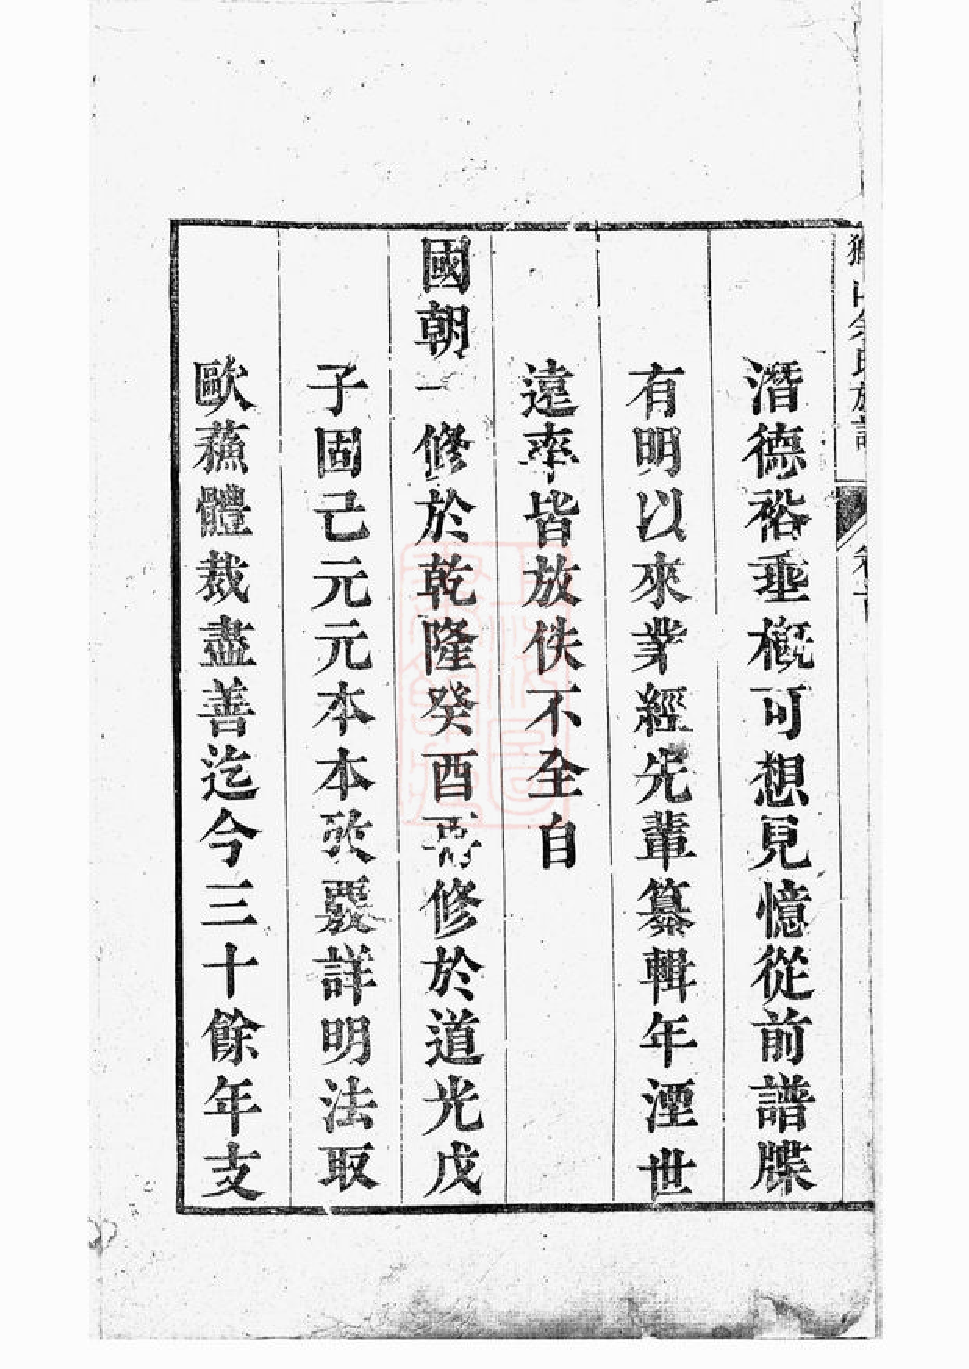 山余氏族譜
卷首
潛德裕垂概可想見憶從前譜牒
有明以來業經先輩纂輯年湮世
遠率皆放佚不至自
國朝一修於乾隆癸酉再修於道光戊
子固己元元本本攷覈詳明法取
歐蘇體裁盡善迄今三十餘年支